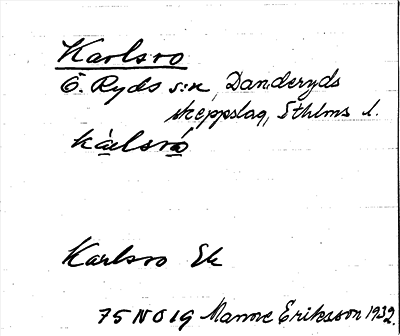 Karlsro
Ö. Ryds s:n, Danderyds
skeppslag, Sthlms l.
kà̱lsró̱
Karlsro Ek
75 NO 19 Manne Eriksson 1932.